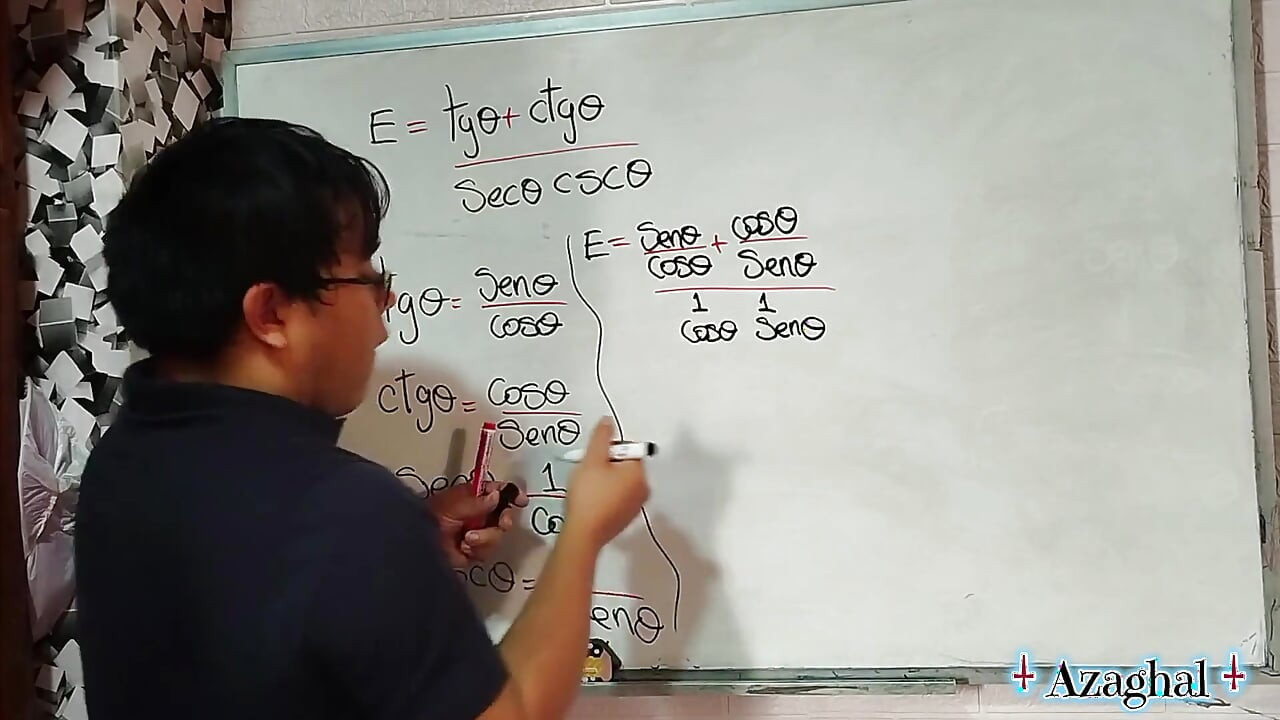 E = tgθ + ctgθ
secθ cscθ
tgθ = senθ
cosθ
ctgθ = cosθ
senθ
1
cscθ =
senθ
E = senθ + cosθ
cosθ senθ
1 1
cosθ senθ
Azaghal